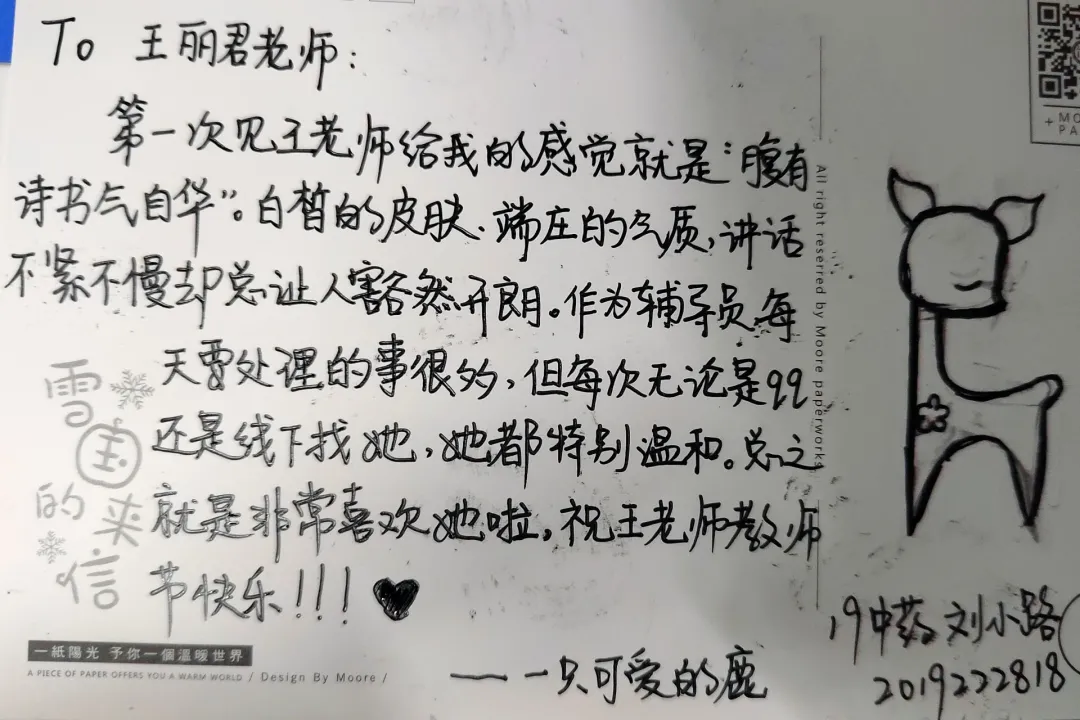 To 王丽君老师：
第一次见王老师给我的感觉就是“腹有
诗书气自华”。白皙的皮肤、端庄的气质,讲话
不紧不慢却总让人豁然开朗。作为辅导员,每
天要处理的事很多,但每次无论是qq
还是线下找她,她都特别温和。总之
就是非常喜欢她啦,祝王老师教师
节快乐!!!
——一只可爱的鹿
19中药 刘小路
2019222818
雪宝
的来信
一紙陽光 予你一個溫暖世界
A PIECE OF PAPER OFFERS YOU A WARM WORLD / Design By Moore /
All right reserred by Moore paperworks
+ MO
PA